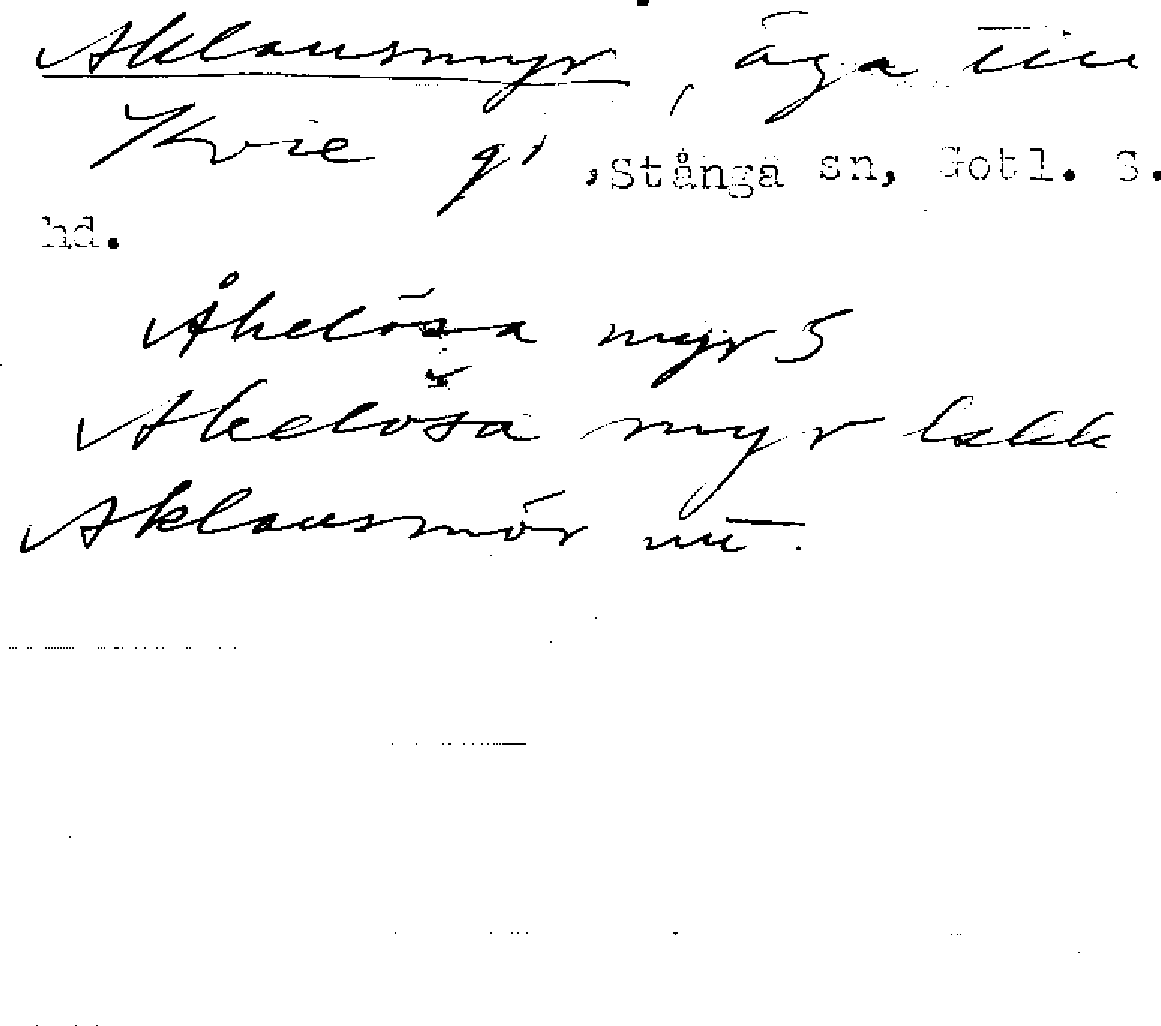 Aklausmyr, äga till
Kvie g, Stånga sn, Gotl. S.
hd.
Åkelösa myr 5
Akelösa myr lskk
Aklausmör nu.